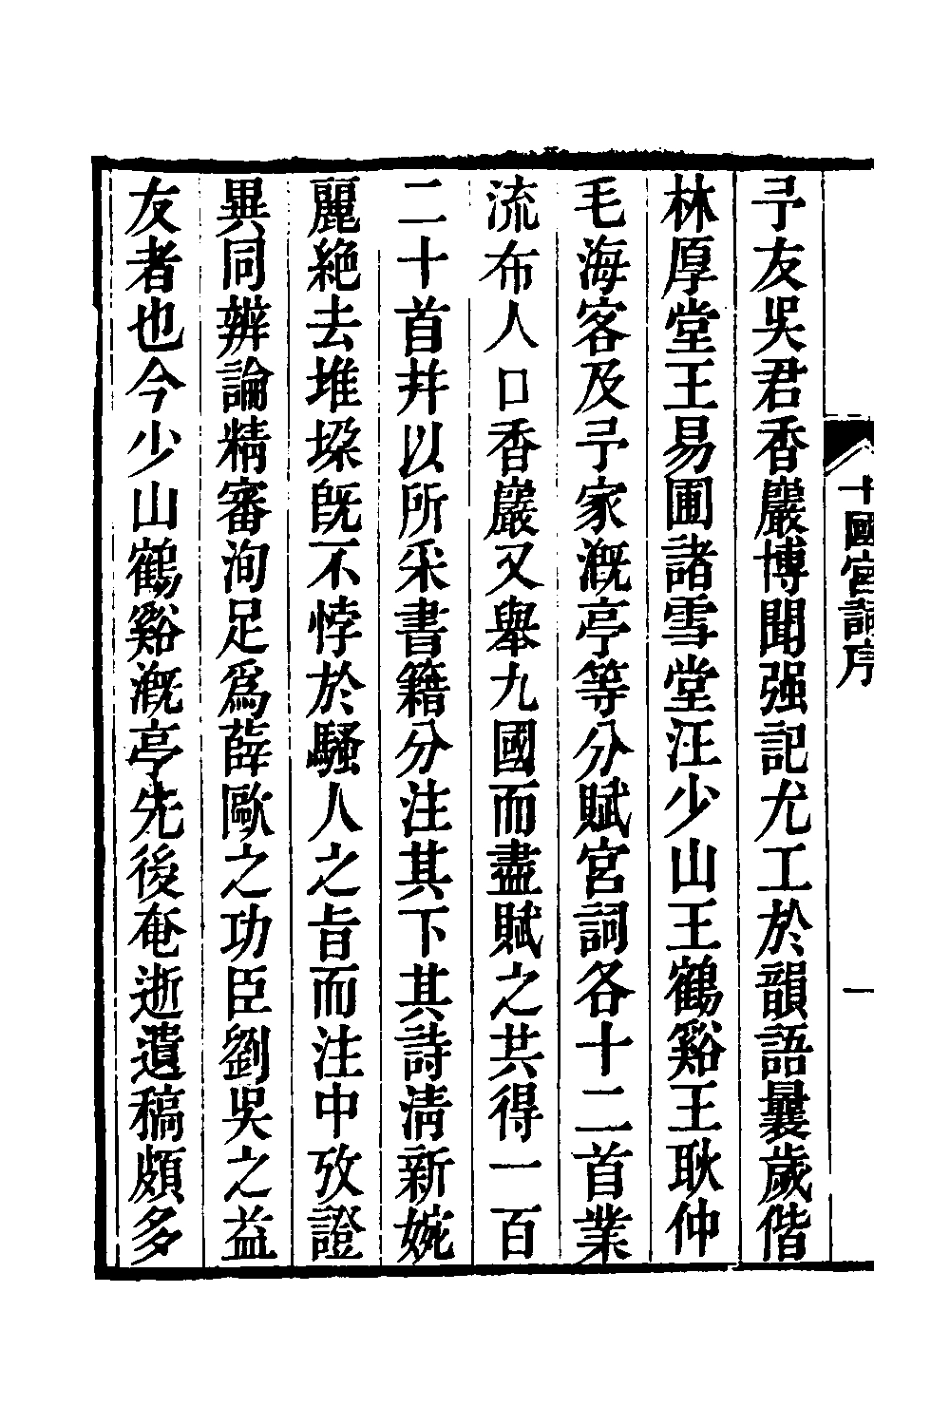 十國宮詞序
一
予友吳君香巖博聞强記尤工於韻語曩歲偕
林厚堂王易圃諸雪堂汪少山王鶴谿王耿仲
毛海客及予家溉亭等分賦宮詞各十二首業
流布人口香巖又舉九國而盡賦之共得一百
二十首幷以所采書籍分注其下其詩清新婉
麗絶去堆垜旣不悖於騷人之旨而注中攷證
異同辨論精審洵足爲薛歐之功臣劉吳之益
友者也今少山鶴谿溉亭先後奄逝遺稿頗多